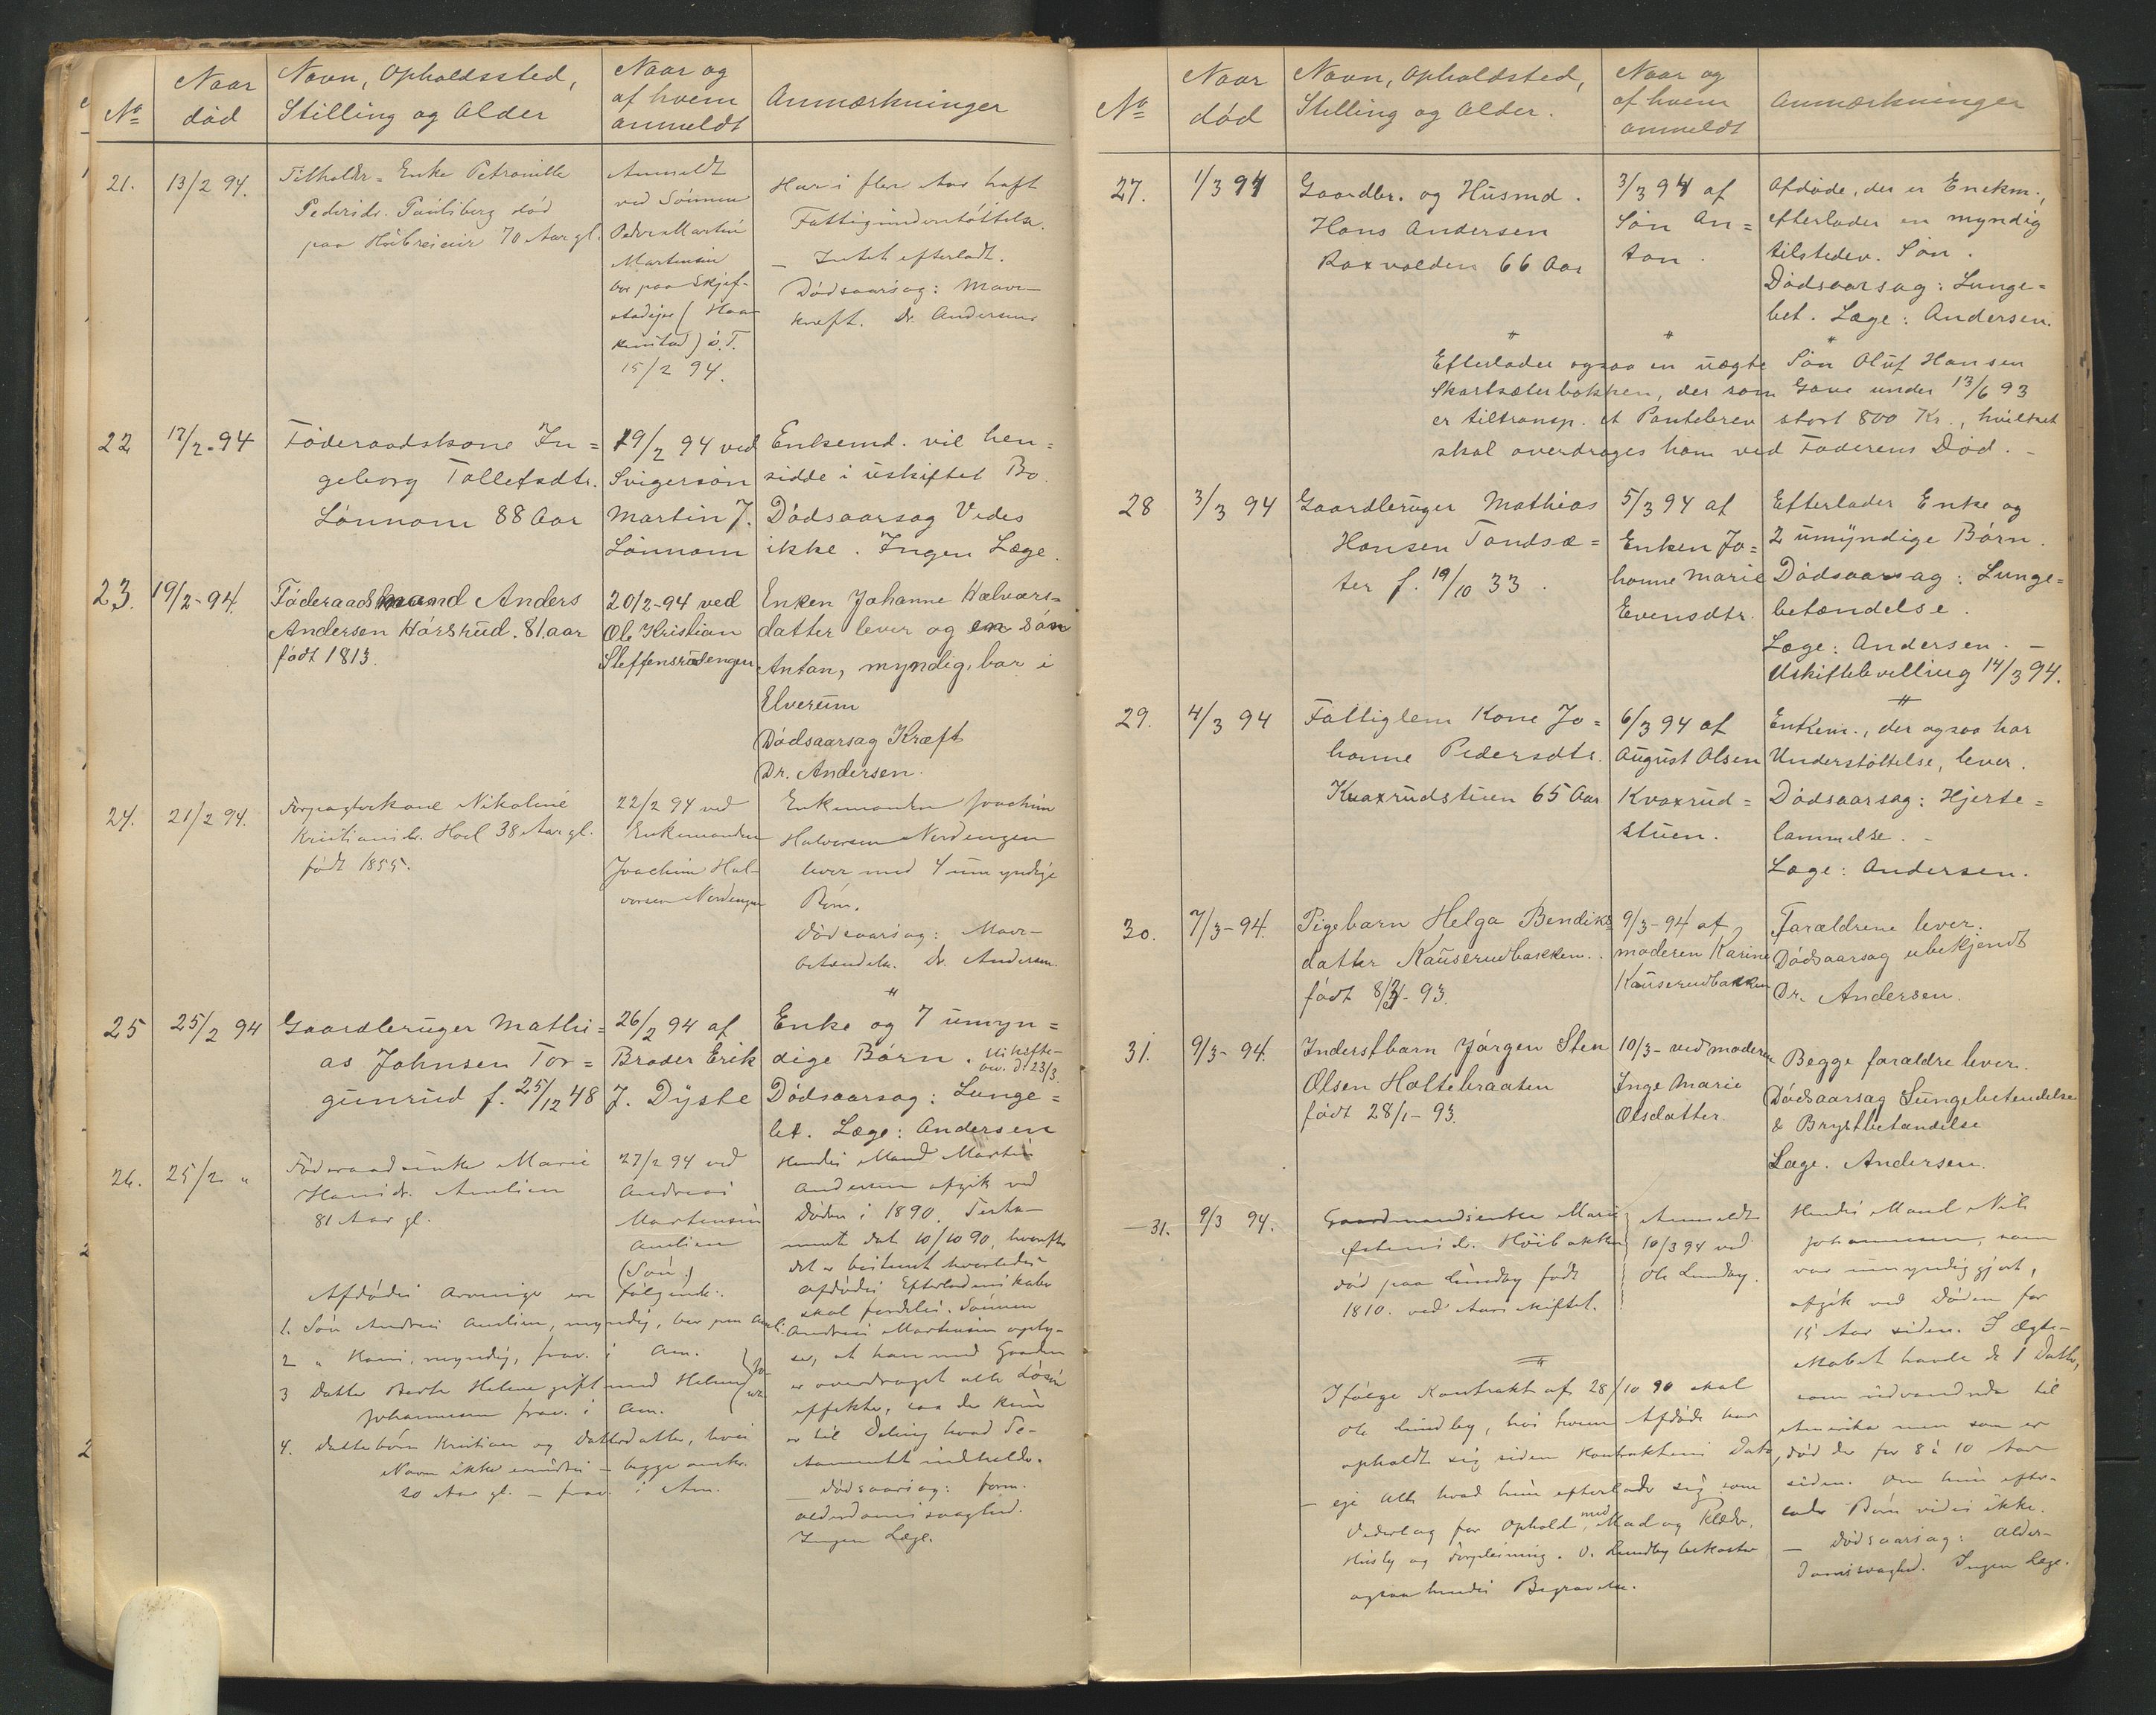 No
Naar
død
Navn, Opholdssted,
Stilling og Alder
Naar og
af hvem
anmeldt
Anmærkninger
21.
13/2 94.
Tilholds= Enke Petronille
Pedersdr. Paulsberg død
paa 70 Aar gl.
Anmeldt
ved Sønnen
Peder Martin
Martinsen
bor paa Skjef-
stadeje (Haa-
kenstad) ø. T.
15/2 94.
Har i flere Aar haft
Fattigunderstøttelse.
– Intet efterladt.
Dødsaarsag: Mave-
kræft. Dr. Andersen.
22
17/2-94
Føderaadskone In=
geborg Tollefsdtr.
Lønnom 88 Aar
19/2 94 ved
Svigersøn
Martin J.
Lønnom
Enkemd. vil hen=
sidde i uskiftet Bo.
Dødsaarsag Vides
ikke. Ingen Læge.
23.
19/2-94.
Føderaadsmand Anders
Andersen Hørsrud. 81 aar
født 1813.
20/2-94 ved
Ole Kristian
Steffensrudengen
Enken Johanne Halvors-
datter lever og en Søn
Anton, myndig, bor i
Elverum
Dødsaarsag Kræft
Dr. Andersen.
24.
21/2 94.
Forpagterkone Nikoline
Kristiansdr. Hoel 38 Aar gl.
født 1855.
22/2 94 ved
Enkemanden
Joachim Hal-
vorsen Nordengen
Enkemanden Joachim
Halvorsen Nordengen
lever med 4 umyndige
Børn.
Dødsaarsag: Mave-
betændelse. Dr. Andersen.
25
25/2 94
Gaardbruger Mathi=
as Johnsen Tor=
gunrud f. 25/12 48
26/2 94 af
Broder Erik
J. Dyste
Enke og 7 umyn=
dige Børn. Uskifte-
bev. d. 23/3.
Dødsaarsag: Lunge=
bet. Læge: Andersen
26.
25/2 "
Føderaadsenke Marie
Hansdr. Amlien
81 Aar gl.
27/2 94 ved
Andreas
Martinsen
Amlien
(Søn.)
Hendes Mand Martin
Andersen afgik ved
Døden i 1890. Testa-
mente dat 10/10 90, hvorefter
det er bestemt hvorledes
afdødes Efterladenskaber
skal fordeles. Sønnen
Andreas Martinsen oply-
ser, at han med Gaarden
er overdraget alle Løsøre
effekter, saa der kun
er til Deling hvad Te-
stamentet indholder.
– Dødsaarsag: form.
alderdomssvaghed.
Ingen Læge.
Afdødes Arvinger er følgende:
1. Søn Andreas Amlien, myndig, bor paa Aml.
2 " Hans, myndig, frav. i Am.
3 Datter Berte Helene gift med Helmer
Johannesen frav. i Am.
4. Datterbørn Kristian og Datterdatter, hvis
Navn ikke erindres – begge omkr.
20 Aar gl. – frav. i Am.
No
Naar
død
Navn, Opholdsted,
Stilling og Alder.
Naar og
af hvem
anmeldt
Anmærkninger
27.
1/3 94
Gaardbr. og Husmd.
Hans Andersen
Roxvolden 66 Aar
3/3 94 af
Søn An=
ton.
Afdøde, der er Enekm.,
efterlader en myndig
tilstedev. Søn.
Dødsaarsag: Lunge=
bet. Læge: Andersen.
Efterlader ogsaa en uægte Søn Oluf Hansen
Skartsæterbakken, der som Gave under 13/6 93
er tiltransp. et Pantebrev stort 800 Kr., hvilket
skal overdrages ham ved Faderens Død. –
28
3/3 94
Gaardbruger Mathias
Hansen Tandsæ=
ter f. 19/10 33.
5/3 94 af
Enken Jo=
hanne Marie
Evensdtr.
Efterlader Enke og
2 umyndige Børn.
Dødsaarsag: Lunge=
betændelse.
Læge: Andersen. –
Uskiftebevilling 14/3 94.
29.
4/3 94
Fattiglem Kone Jo=
hanne Pedersdtr.
Kvaxrudstuen 65 Aar
6/3 94 af
August Olsen
Kvaxrud=
stuen.
Enkem., der ogsaa har
Understøttelse, lever.
Dødsaarsag: Hjerte=
lammelse. –
Læge: Andersen.
30.
7/3-94.
Pigebarn Helga Bendiks
datter Kauserudbakken.
født 8/3-93.
9/3-94 af
moderen Karine
Kauserudbakken
Forældrene lever.
Dødsaarsag ubekjendt
Dr. Andersen.
31.
9/3-94.
Inderstbarn Jørgen Sten
Olsen Holtebraaten
født 28/1-93.
10/3- ved moderen
Inge Marie
Olsdatter.
Begge forældre lever.
Dødsaarsag Lungebetendelse
& Brystbetændelse
Læge. Andersen.
31.
9/3 94.
Gaardmandsenke Marie
Høibakken
død paa Lundby født
1810. ved Aarsskiftet.
Anmeldt
10/3 94 ved
Ole Lundby.
Hendes Mand Nils
Johannesen, som
var umyndiggjort,
afgik ved Døden for
15 Aar siden. I Ægte-
skabet havde de 1 Datter,
som udvandrede til
Amerika men som er
død der for 8 à 10 Aar
siden. Om hun efter-
lader Børn vides ikke.
– Dødsaarsag: Alder-
domssvaghed. Ingen Læge.
Ifølge Kontrakt af 28/10 90 skal
Ole Lundby, hos hvem Afdøde har
opholdt sig siden Kontraktens Dato,
– eje Alt hvad hun efterlader sig som
Vederlag for Ophold, med Mad og Klæder,
Husly og Forpleining. O. Lundby bekoster
ogsaa hendes Begravelse.